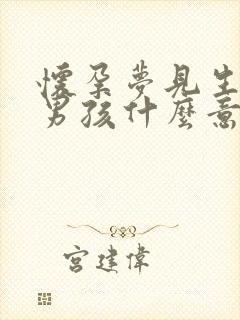 懷孕夢見生
男孩什麼意
宮建偉